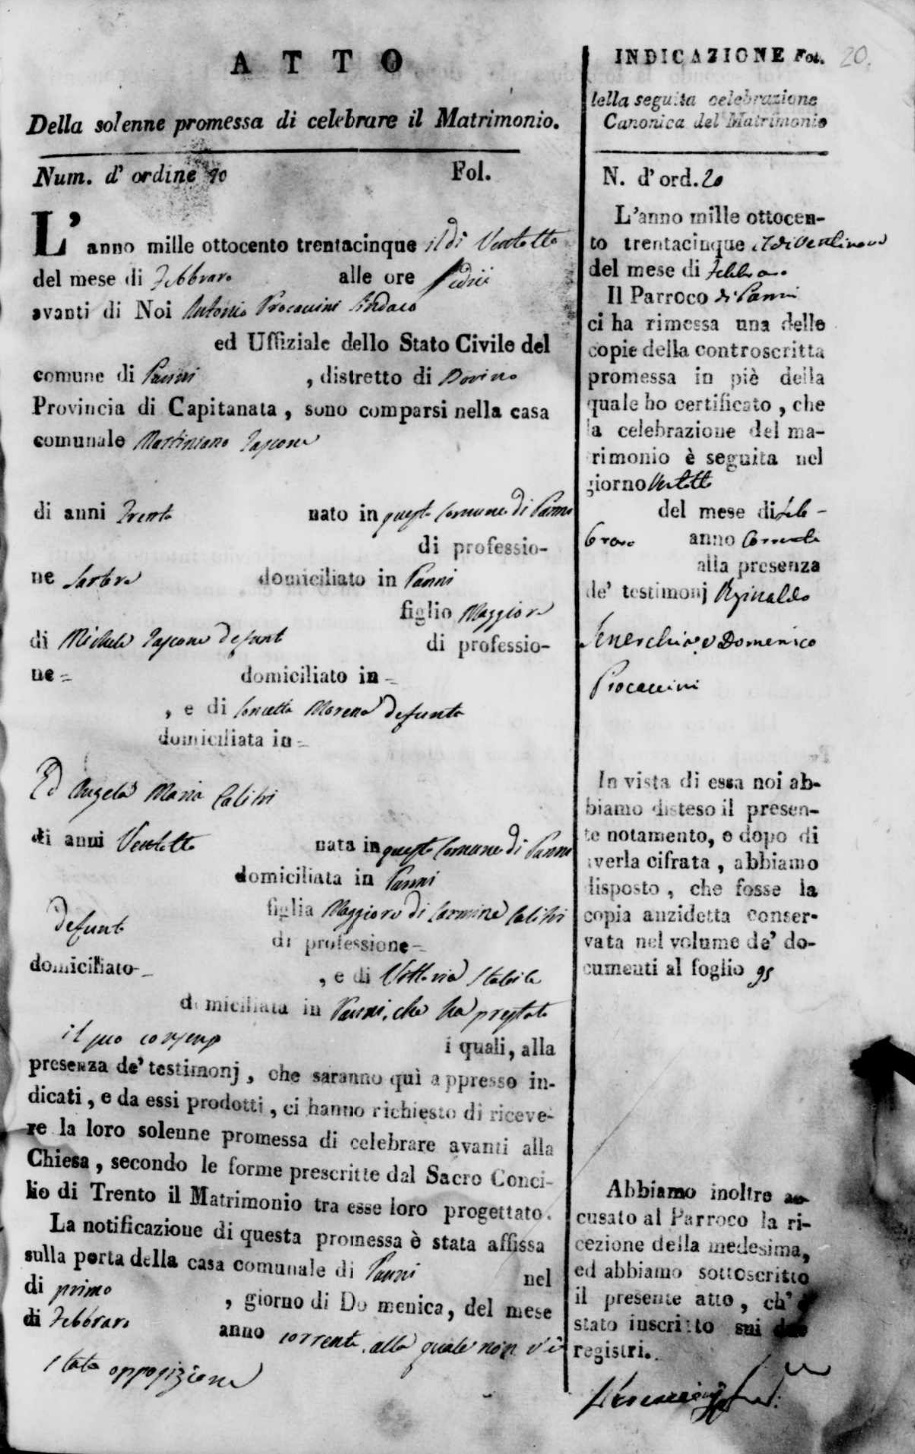 ATTO
Della solenne promessa di celebrare il Matrimonio.
Num. d' ordine 20 Fol.
L' anno mille ottocento trentacinque il dì Ventotto
del mese di Febbraro alle ore sedici
avanti di Noi Antonio Procaccini Sindaco
ed Uffiziale dello Stato Civile del
comune di Panni , distretto di Bovino
Provincia di Capitanata , sono comparsi nella casa
comunale Martiniano
di anni Trenta nato in questo Comune di Panni
di professio-
ne domiciliato in Panni
figlio Maggiore
di Michele defunto di professio-
ne = domiciliato in =
, e di Concetta Morena defunta
domiciliata in =
Ed Angela Maria Calitri
di anni Ventotto nata in questo Comune di Panni
domiciliata in Panni
figlia Maggiore di Carmine Calitri
defunto di professione =
domiciliato = , e di Vittoria Stabile
domiciliata in Panni, che ha prestato
il suo consenso i quali, alla
presenza de' testimonj , che saranno quì appresso in-
dicati , e da essi prodotti , ci hanno richiesto di riceve-
re la loro solenne promessa di celebrare avanti alla
Chiesa , secondo le forme prescritte dal Sacro Conci-
lio di Trento il Matrimonio tra esse loro progettato.
La notificazione di questa promessa è stata affissa
sulla porta della casa comunale di Panni nel
di primo , giorno di Domenica, del mese
di Febbraro anno corrente, alla quale non v'è
stata opposizione
INDICAZIONE Fol. 20.
della seguita celebrazione
Canonica del Matrimonio
N. d' ord. 20
L'anno mille ottocen-
to trentacinque il dì Ventinove
del mese di Febbraro
Il Parroco di Panni
ci ha rimessa una delle
copie della controscritta
promessa in piè della
quale ho certificato , che
la celebrazione del ma-
rimonio è seguita nel
giorno Ventotto
del mese di Feb-
braro anno Corrente
alla presenza
de' testimonj Reginaldo
Senerchia, e Domenico
Procaccini
In vista di essa noi ab-
biamo disteso il presen-
te notamento, e dopo di
averla cifrata , abbiamo
disposto , che fosse la
copia anzidetta conser-
vata nel volume de' do-
cumenti al foglio 95
Abbiamo inoltre ac-
cusato al Parroco la ri-
cezione della medesima,
ed abbiamo sottoscritto
il presente atto , ch' è
stato inscritto sui due
registri.